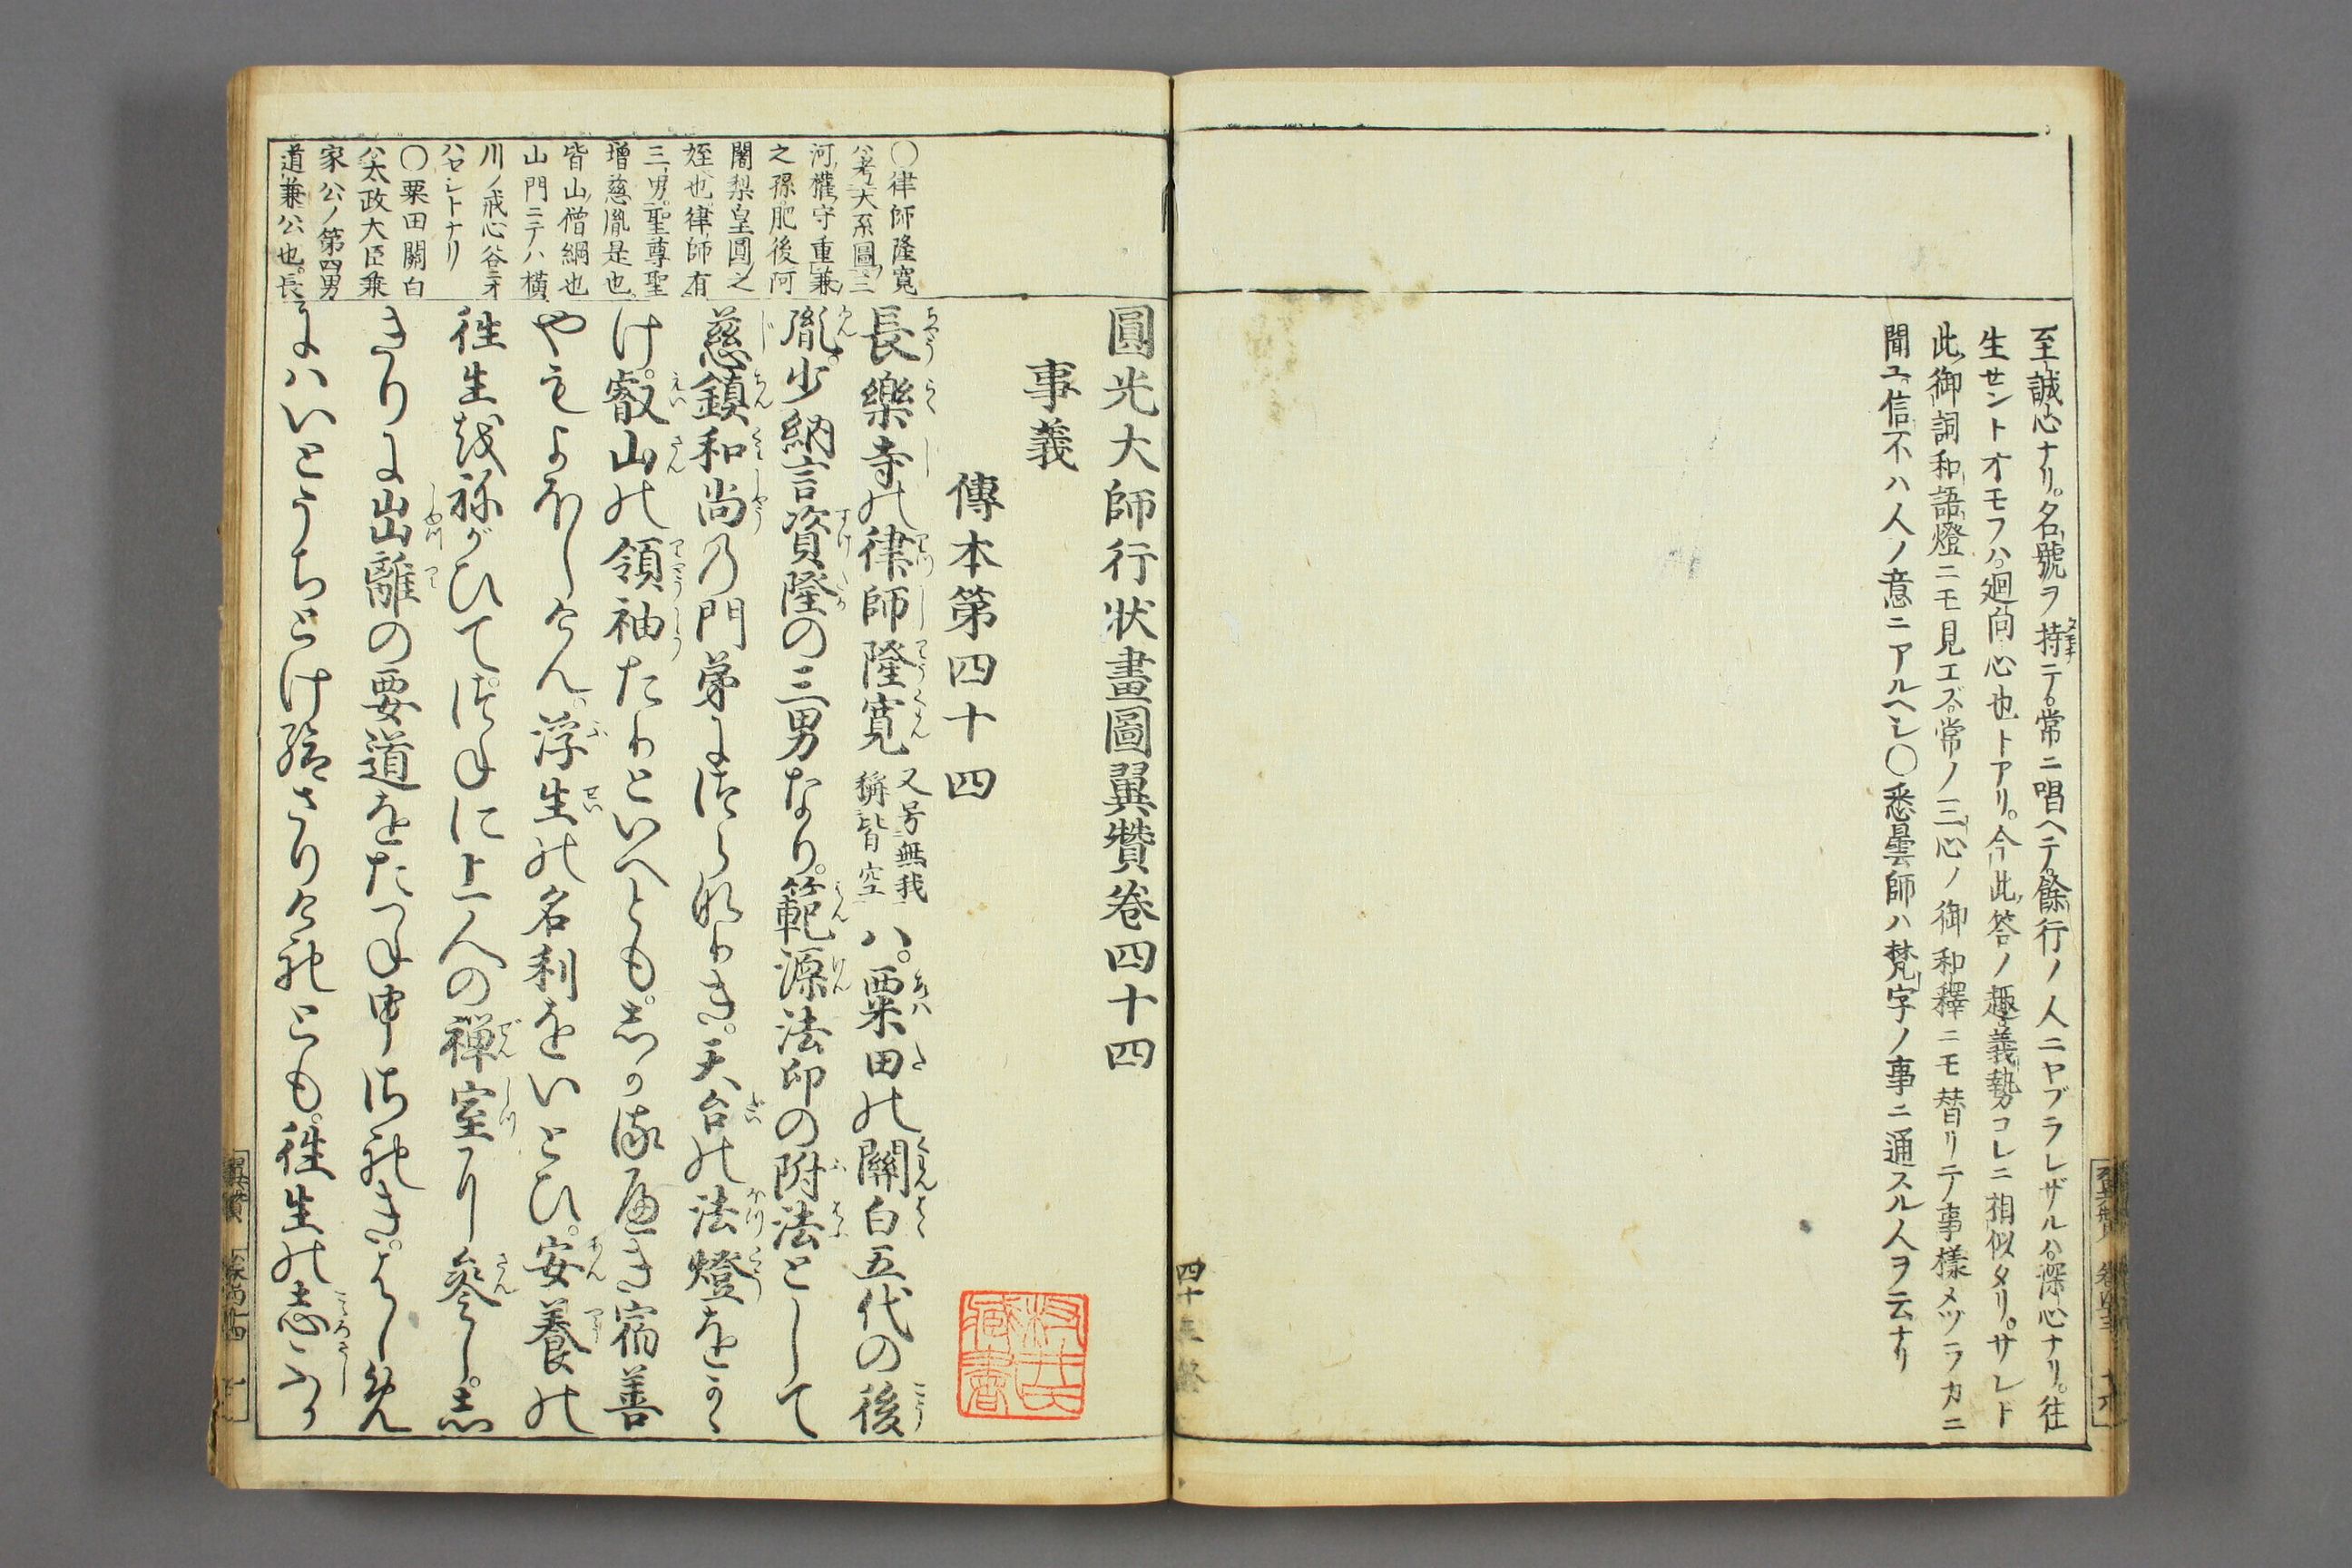 至誠心ナリ。名號ヲ持テ。常ニ唱ヘテ。餘行ノ人ニヤブラレザルハ。深心ナリ。往
生セントオモフハ。廻向心也トアリ。今此答ノ趣義勢コレニ相似タリ。サレド
此御詞和語燈ニモ見エズ。常ノ三心ノ御和釋ニモ替リテ事樣メヅラカニ
聞ユ。信不ハ人ノ意ニアルヘシ〇悉曇師ハ梵字ノ事ニ通スル人ヲ云ナリ
圓光大師行状畫圖翼贊卷四十四
事義
傳本第四十四
長樂寺の律師隆寛又号無我稱皆空ハ。粟田の關白五代の後
胤。少納言資隆の三男なり。範源法印の附法として
慈鎮和尚の門弟につらなりき。天台の法燈をかゝ
け。叡山の領袖たりといへとも。しかるへき宿善
やもよほしけん。浮生の名利をいとひ。安養の
往生をねがひて。つねに上人の禅室に參し。志
きりに出離の要道をたつね申されき。はしめ
にハいとうちとけ給さりけれとも。往生の志ふか
〇律師隆寛
ハ考大系圖ニ
河權守重兼
之孫肥後阿
闍梨皇圓之
姪也律師有
三男。聖尊聖
増慈胤是也
皆山僧綱也
山門ニテハ横
川ノ戒心谷ニオ
ハセシトナリ
〇粟田關白
ハ太政大臣兼
家公ノ第四男
道兼公也。長